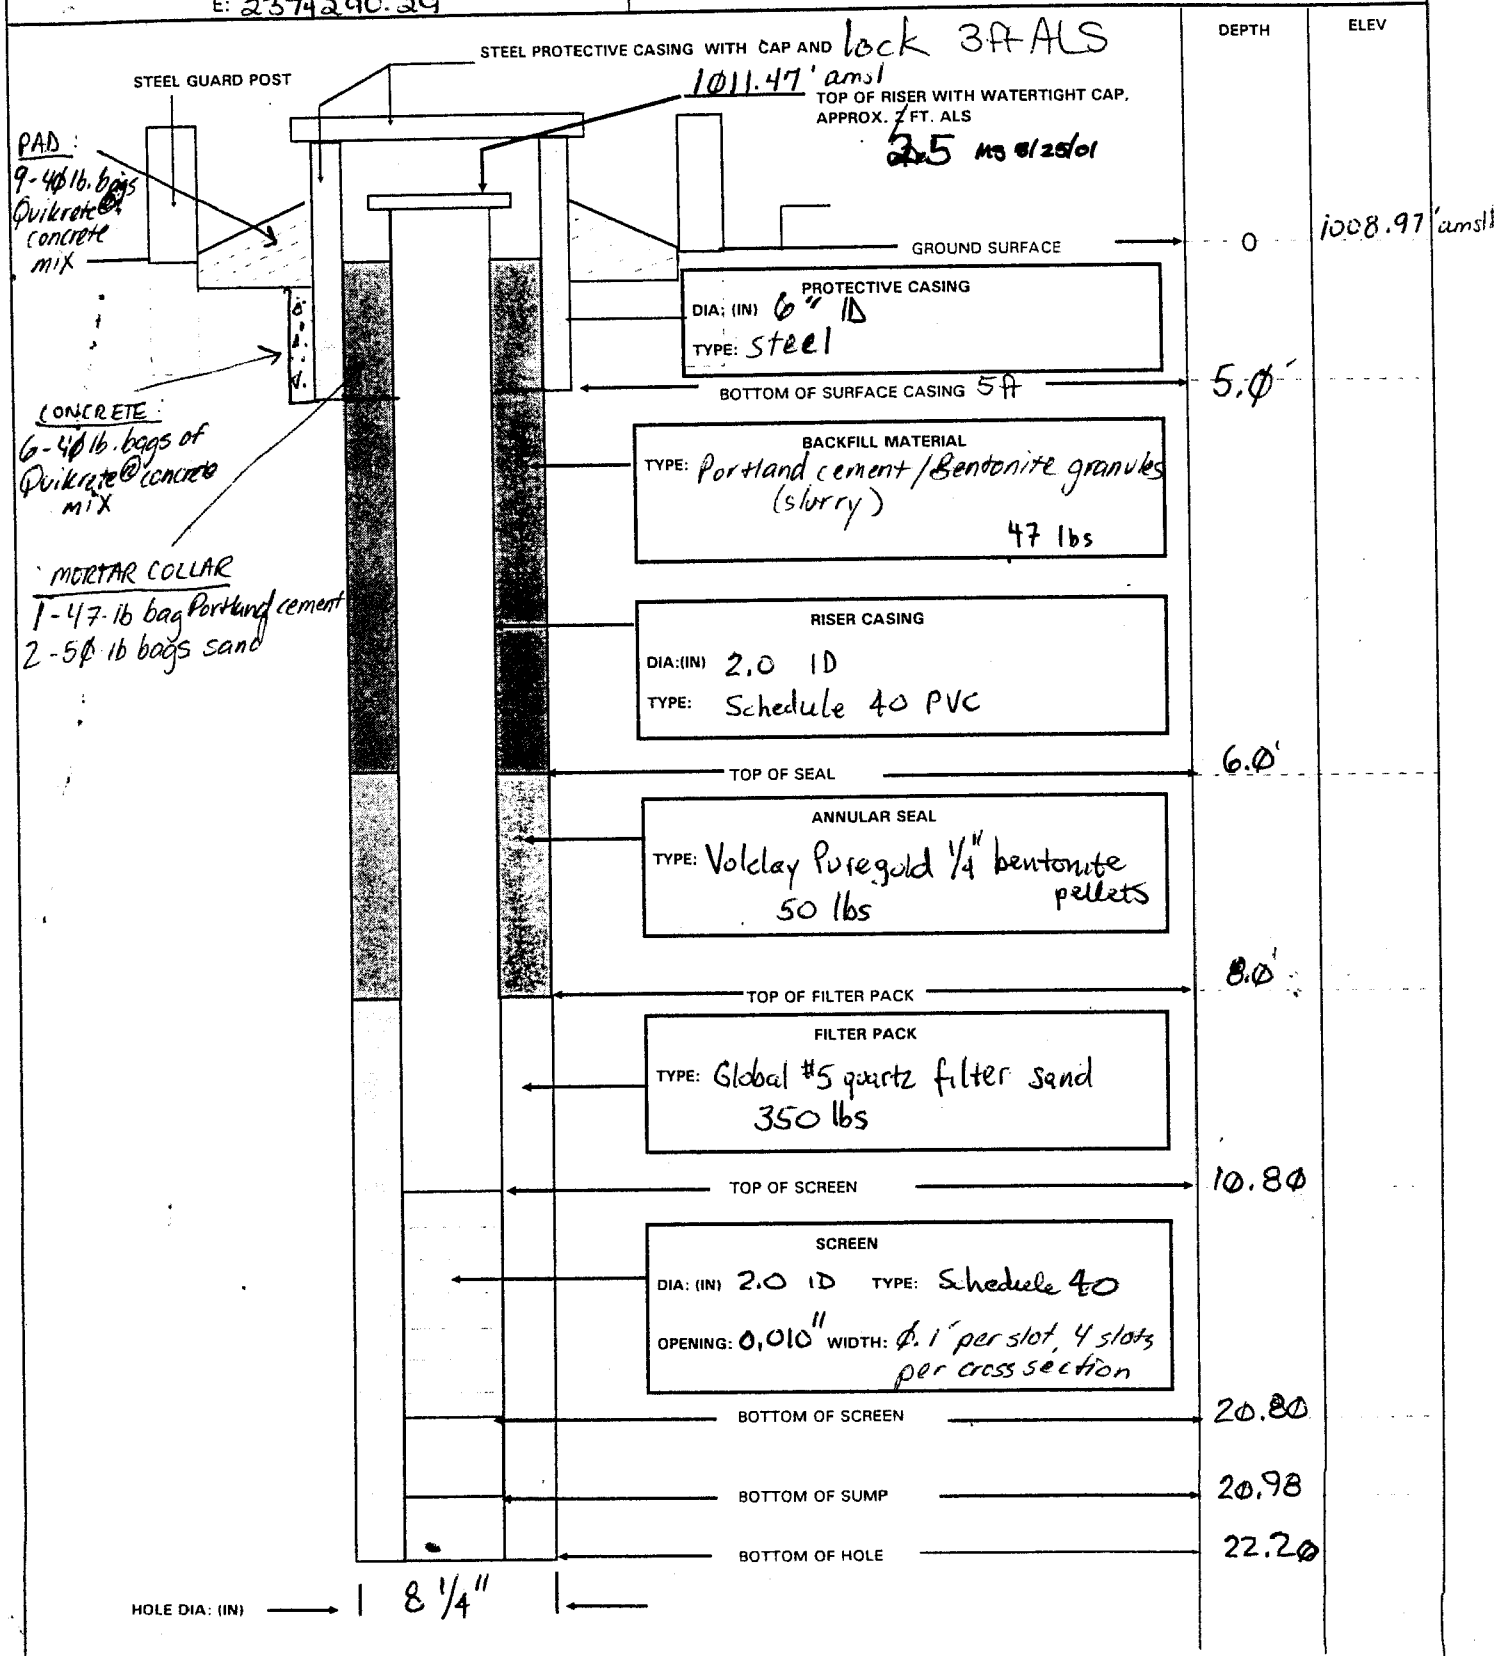 E: 2374290.29
DEPTH
ELEV
STEEL PROTECTIVE CASING WITH CAP AND lock 3ft ALS
STEEL GUARD POST
1011.47' amsl
TOP OF RISER WITH WATERTIGHT CAP,
APPROX. 2 FT. ALS
2.5 MS 8/25/01
PAD:
9-40 lb. bags
Quikrete®
concrete
mix
GROUND SURFACE
0
1008.97' amsl
PROTECTIVE CASING
DIA: (IN) 6" ID
TYPE: Steel
BOTTOM OF SURFACE CASING 5 ft
5.0'
CONCRETE:
6-40 lb. bags of
Quikrete® concrete
mix
BACKFILL MATERIAL
TYPE: Portland cement/Bentonite granules
(slurry)
47 lbs
MORTAR COLLAR
1-47-lb bag Portland cement
2-50-lb bags sand
RISER CASING
DIA:(IN) 2.0 ID
TYPE: Schedule 40 PVC
TOP OF SEAL
6.0'
ANNULAR SEAL
TYPE: Volclay Puregold 1/4" bentonite
pellets
50 lbs
TOP OF FILTER PACK
8.0'
FILTER PACK
TYPE: Global #5 quartz filter sand
350 lbs
TOP OF SCREEN
10.80
SCREEN
DIA: (IN) 2.0 ID TYPE: Schedule 40
OPENING: 0.010" WIDTH: 0.1' per slot, 4 slots
per cross section
BOTTOM OF SCREEN
20.80
BOTTOM OF SUMP
20.98
BOTTOM OF HOLE
22.20
HOLE DIA: (IN) 8 1/4"